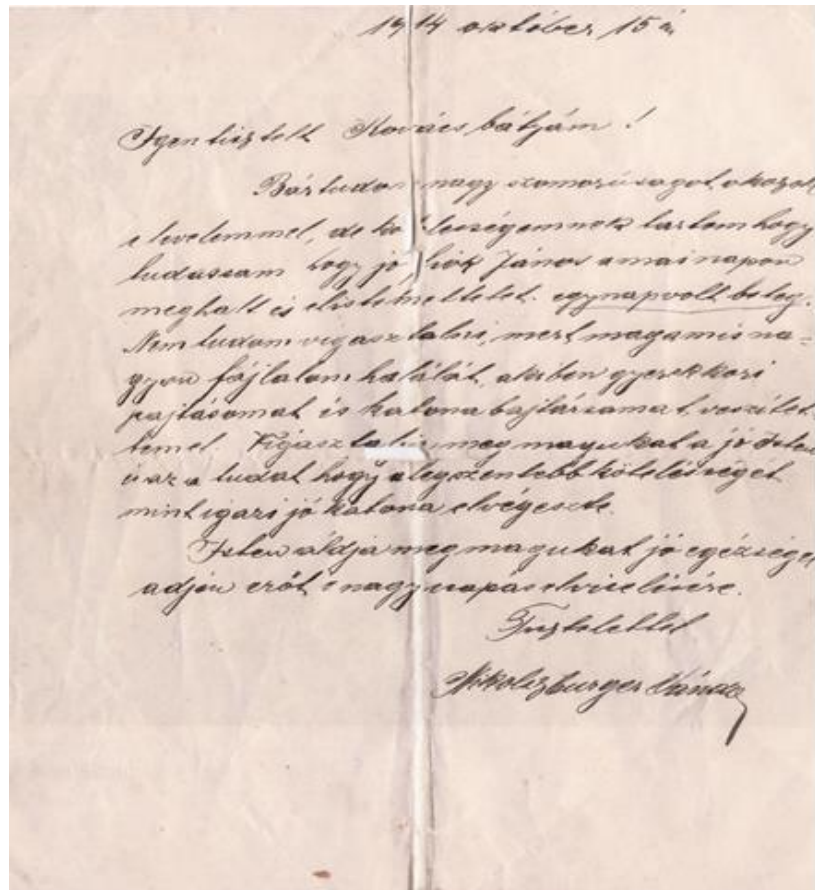 1914 október 15 én
Igen tisztelt Kovács bátyám!
Bár tudom nagy szomorúságot okozok
e levelemmel, de kötelességemnek tartom hogy
tudassam hogy jó fiók János a mai napon
meghalt és eltemettetett. egy nap volt beteg.
Nem tudom vigasztalni, mert magam is na=
gyon fájlalom halálát, akiben gyerekkori
pajtásomat és katona bajtársamat veszítet-
tem el. meg magukat a jó Isten
és az a tudat hogy a legszentebb kötelességét
mint igazi jó katona elvégezte.
Isten áldja meg magukat jó egézséget
adjon erőt e nagy csapás elviselésére.
Tisztelettel
Nikolszburger